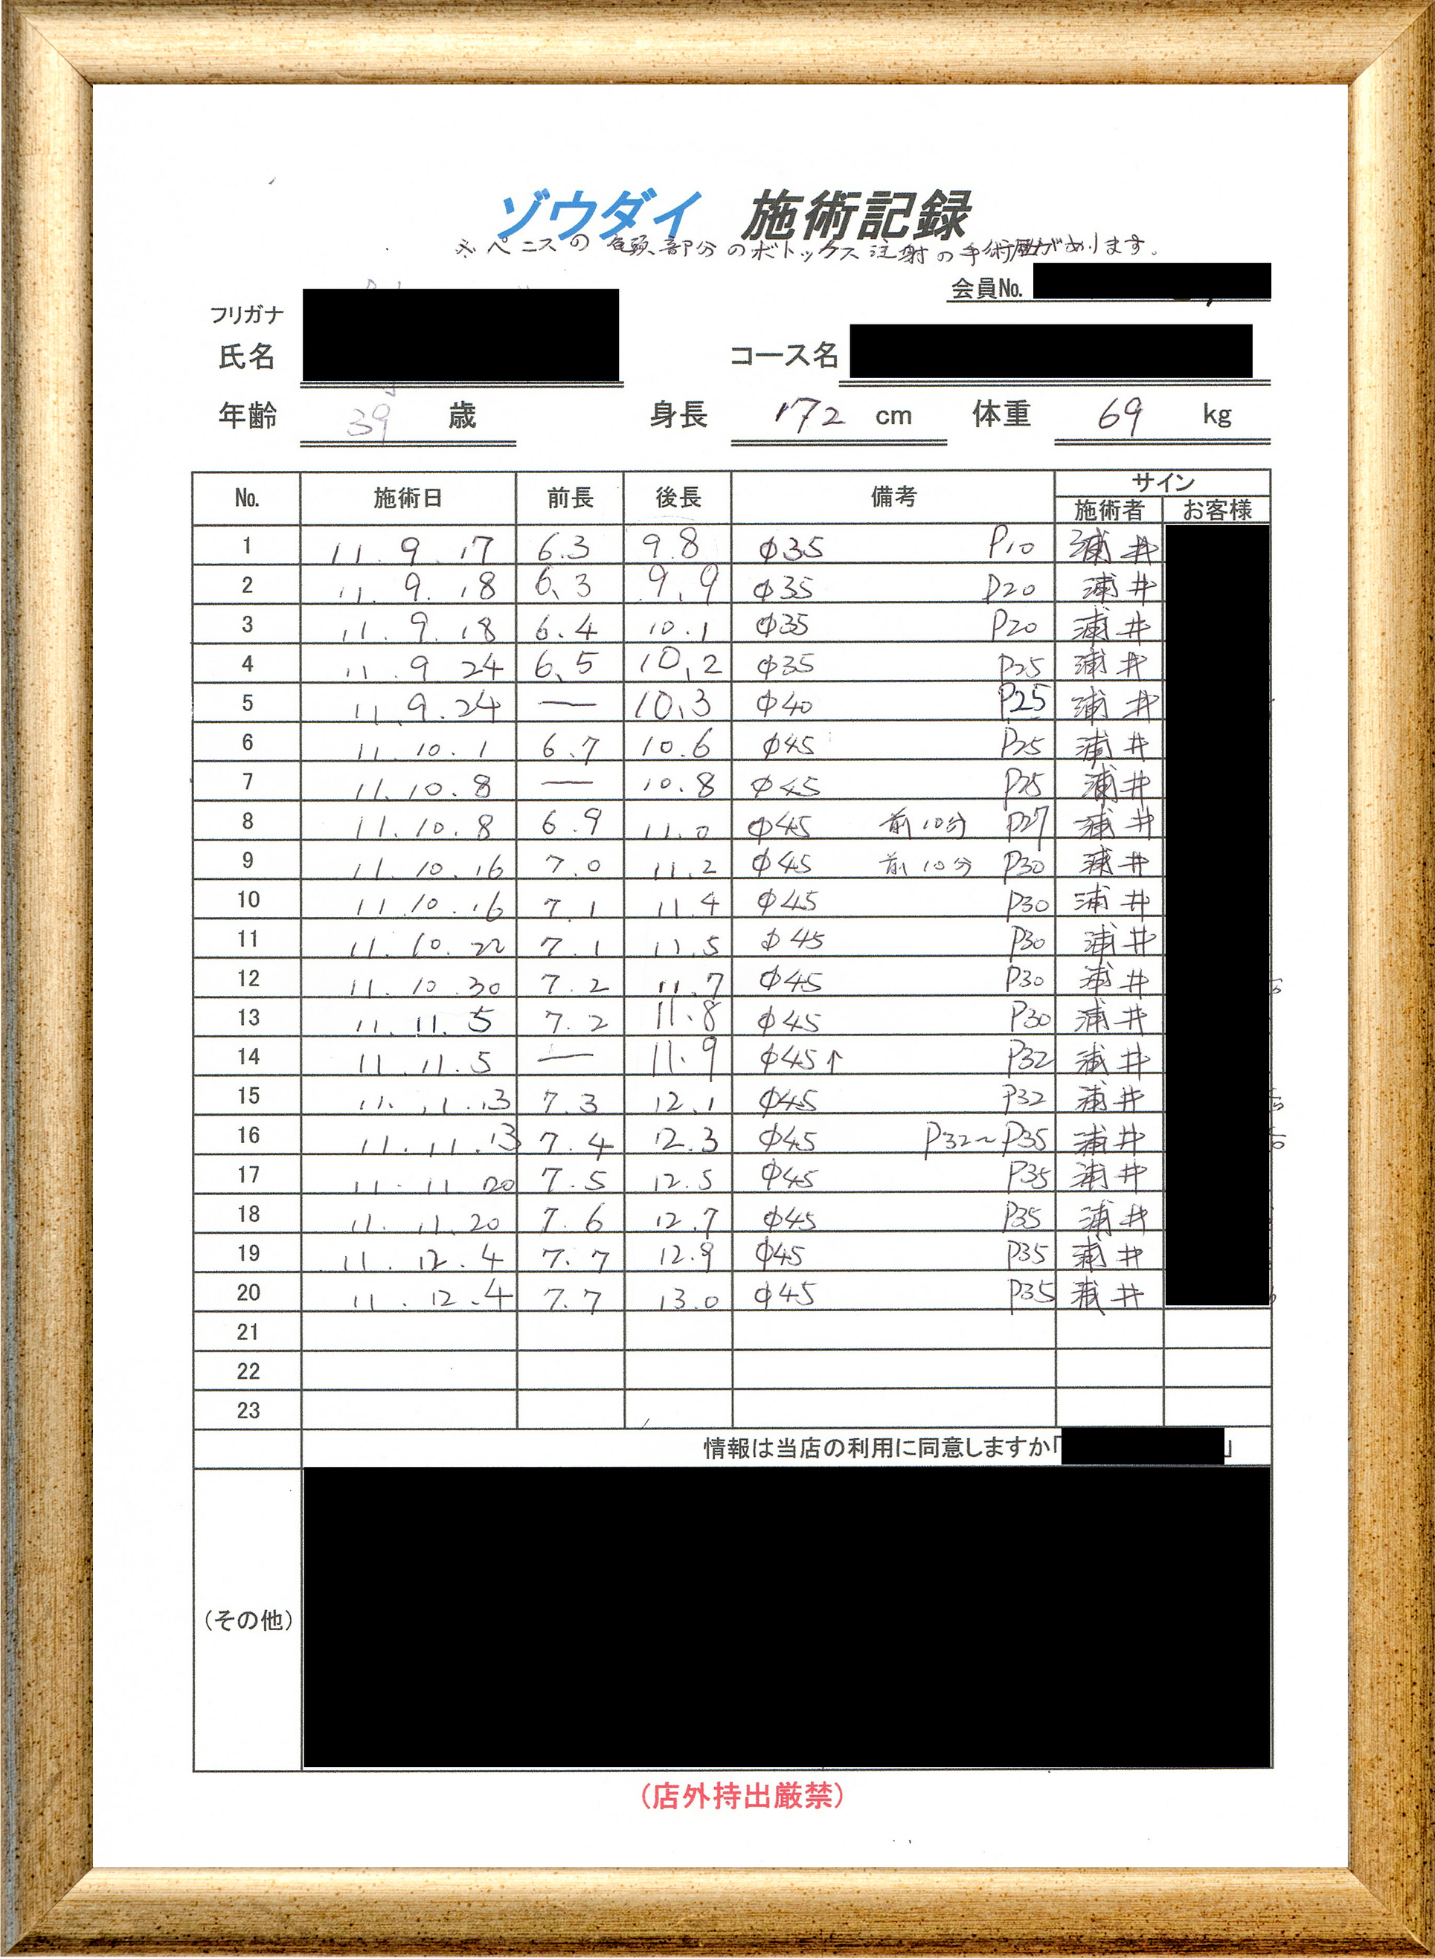 ゾウダイ 施術記録
※ペニスの亀頭部分のボトックス注射の手術歴があります。
会員No.
フリガナ
氏名 コース名
年齢 39 歳 身長 172 cm 体重 69 kg
No. 施術日 前長 後長 備考 サイン
施術者 お客様
1 11.9.17 6.3 9.8 φ35 P10 浦井
2 11.9.18 6.3 9.9 φ35 P20 浦井
3 11.9.18 6.4 10.1 φ35 P20 浦井
4 11.9.24 6.5 10.2 φ35 P25 浦井
5 11.9.24 — 10.3 φ40 P25 浦井
6 11.10.1 6.7 10.6 φ45 P25 浦井
7 11.10.8 — 10.8 φ45 P25 浦井
8 11.10.8 6.9 11.0 φ45 前10分 P27 浦井
9 11.10.16 7.0 11.2 φ45 前10分 P30 浦井
10 11.10.16 7.1 11.4 φ45 P30 浦井
11 11.10.22 7.1 11.5 φ45 P30 浦井
12 11.10.30 7.2 11.7 φ45 P30 浦井
13 11.11.5 7.2 11.8 φ45 P30 浦井
14 11.11.5 — 11.9 φ45↑ P32 浦井
15 11.11.13 7.3 12.1 φ45 P32 浦井
16 11.11.13 7.4 12.3 φ45 P32~P35 浦井
17 11.11.20 7.5 12.5 φ45 P35 浦井
18 11.11.20 7.6 12.7 φ45 P35 浦井
19 11.12.4 7.7 12.9 φ45 P35 浦井
20 11.12.4 7.7 13.0 φ45 P35 浦井
21
22
23
情報は当店の利用に同意しますか「 」
(その他)
(店外持出厳禁)